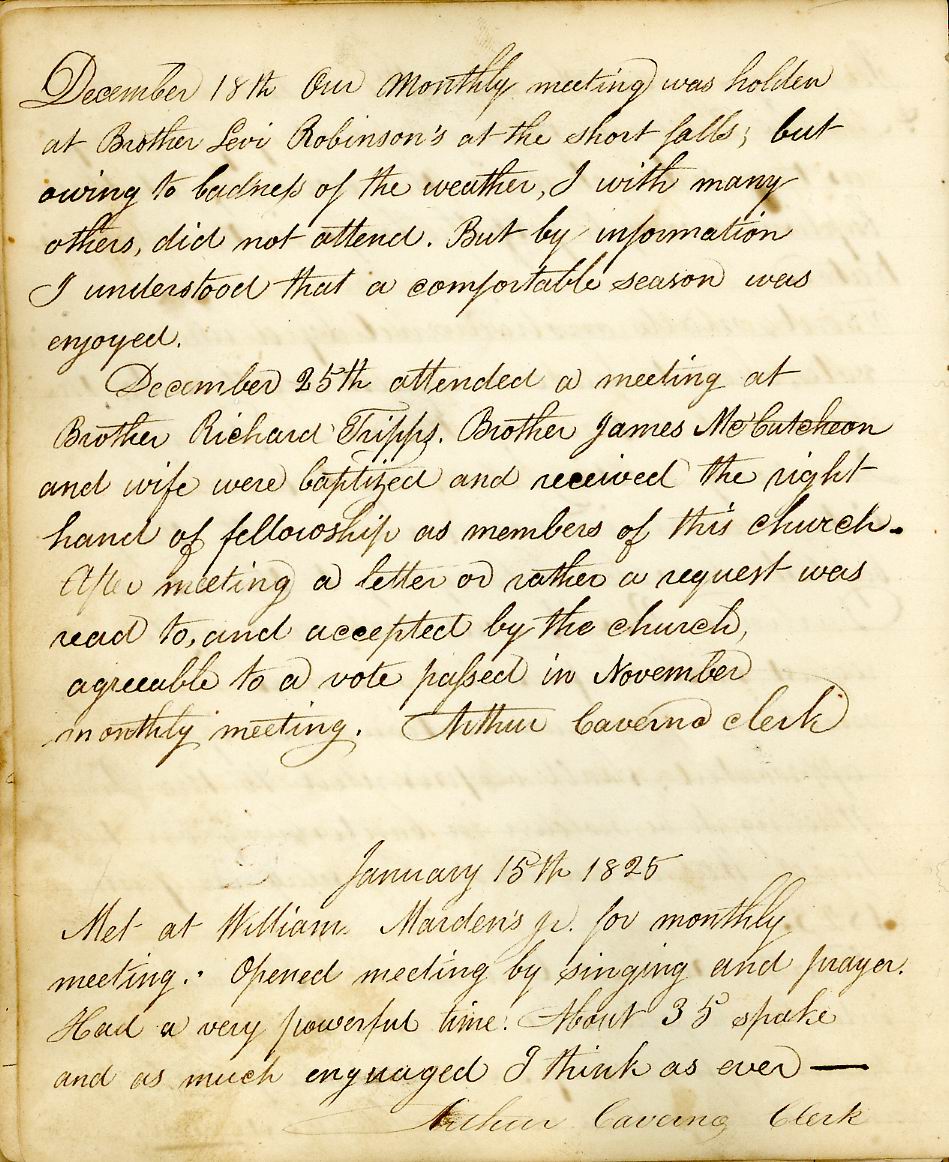 December 18th Our Monthly meeting was holden
at Brother Levi Robinson's at the short falls; but
owing to badness of the weather, I with many
others, did not attend. But by information
I understood that a comfortable season was
enjoyed.
December 25th attended a meeting at
Brother Richard Tripps. Brother James McCutcheon
and wife were baptized and received the right
hand of fellowship as members of this church.
After meeting a letter or rather a request was
read to, and accepted by the church,
agreeable to a vote passed in November
monthly meeting. Arthur Caverno clerk
January 15th 1825
Met at William Marden's jr. for monthly
meeting: Opened meeting by singing and prayer.
Had a very powerful time: About 35 spake
and as much enguaged I think as ever —
Arthur Caverno Clerk